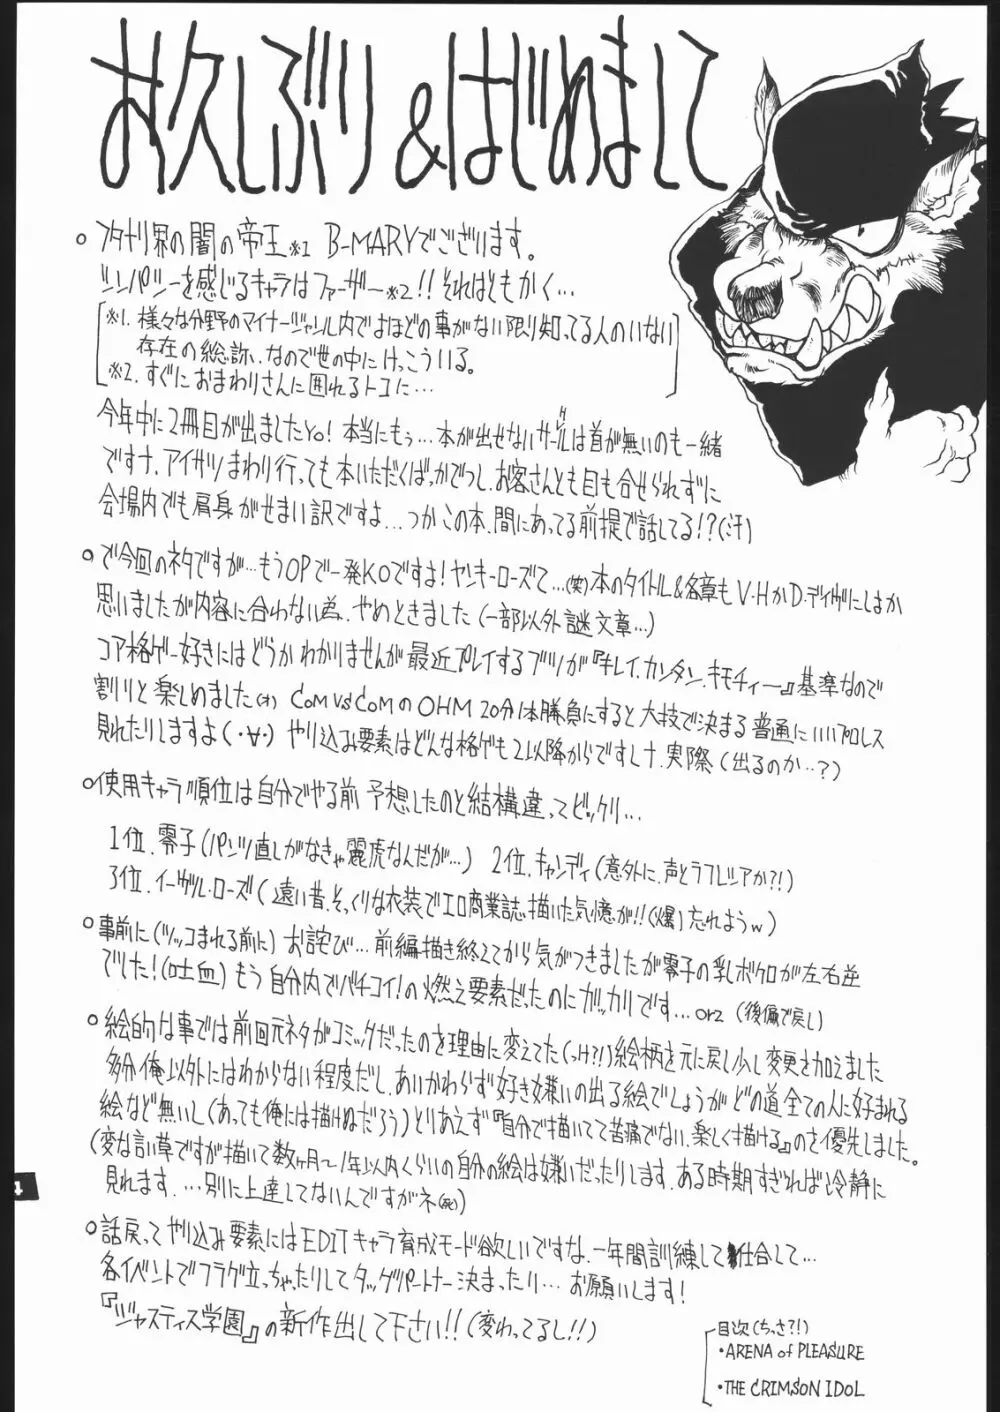 お久しぶり&はじめまして
○フタナリ界の闇の帝王※1 B-MARYでございます。
シンパシーを感じるキャラはファーザー※2!!それはともかく…
※1.様々な分野のマイナージャンル内でよほどの事がない限り知ってる人のいない
存在の総称、なので世の中にけっこういる。
※2.すぐにおまわりさんに囲れるトコに…
今年中に2冊目が出ましたヨ。!本当にもぅ…本が出せないサークルは首が無いのも一緒
ですナ.アイサツまわり行っても本いただくばっかでつし.お客さんとも目も合せられずに
会場内でも肩身がせまい訳ですよ…つかこの本、間にあってる前提で話してる!?(汗)
○で今回のネタですが…もうOPで一発KOですよ!ヤンキーローズて…(笑)本のタイトル&各章もV・HかD.デイヴにしよか
思いましたが内容に合わない為、やめときました(一部以外謎文章…)
コア格ゲー好きにはどうかわかりませんが最近プレイするブツが『キレイ.カンタン.キモチイー』基準なので
割りと楽しめました(オ) COM VS COMのOHM 20分1本勝負にすると大技で決まる普通にいいプロレス
見れたりしますよ(・∀・) やり込み要素はどんな格ゲも2以降からですしナ.実際(出るのか…?)
○使用キャラ順位は自分でやる前予想したのと結構違ってビックリ…
1位.零子(パンツ直しがなきゃ麗虎なんだが…) 2位.キャンディ(意外に.声とラフレシアか?!)
3位.イーヴル・ローズ(遠い昔.そっくりな衣装でエロ商業誌描いた気憶が!!(爆)忘れようw)
○事前に(ツッコまれる前に)お詫び…前編描き終えてから気がつきましたが零子の乳ボクロが左右逆
でした!(吐血)もう自分内でバチコイ!の燃え要素だったのにガッカリです…orz(後編で戻し)
○絵的な事では前回元ネタがコミックだったのを理由に変えてた(っけ?!)絵柄を元に戻し少し変更を加えました
多分俺以外にはわからない程度だし、あいかわらず好き嫌いの出る絵でしょうがどの道全ての人に好まれる
絵など無いし(あっても俺には描けぬだろう)とりあえず『自分で描いてて苦痛でない、楽しく描ける』のを優先しました。
(変な言い草ですが描いて数ヶ月〜1年以内くらいの自分の絵は嫌いだったりします.ある時期すぎれば冷静に
見れます.…別に上達してないんですがネ(死)
○話戻ってやり込み要素にはEDITキャラ育成モード欲しいですな.一年間訓練して試合して…
各イベントでフラグ立っちゃたりしてタッグパートナー決まったり…お願いします!
『ジャスティス学園』の新作出して下さい!!(変わってるし!!)
目次(ちっさ?!)
・ARENA of PLEASURE
・THE CRIMSON IDOL
4